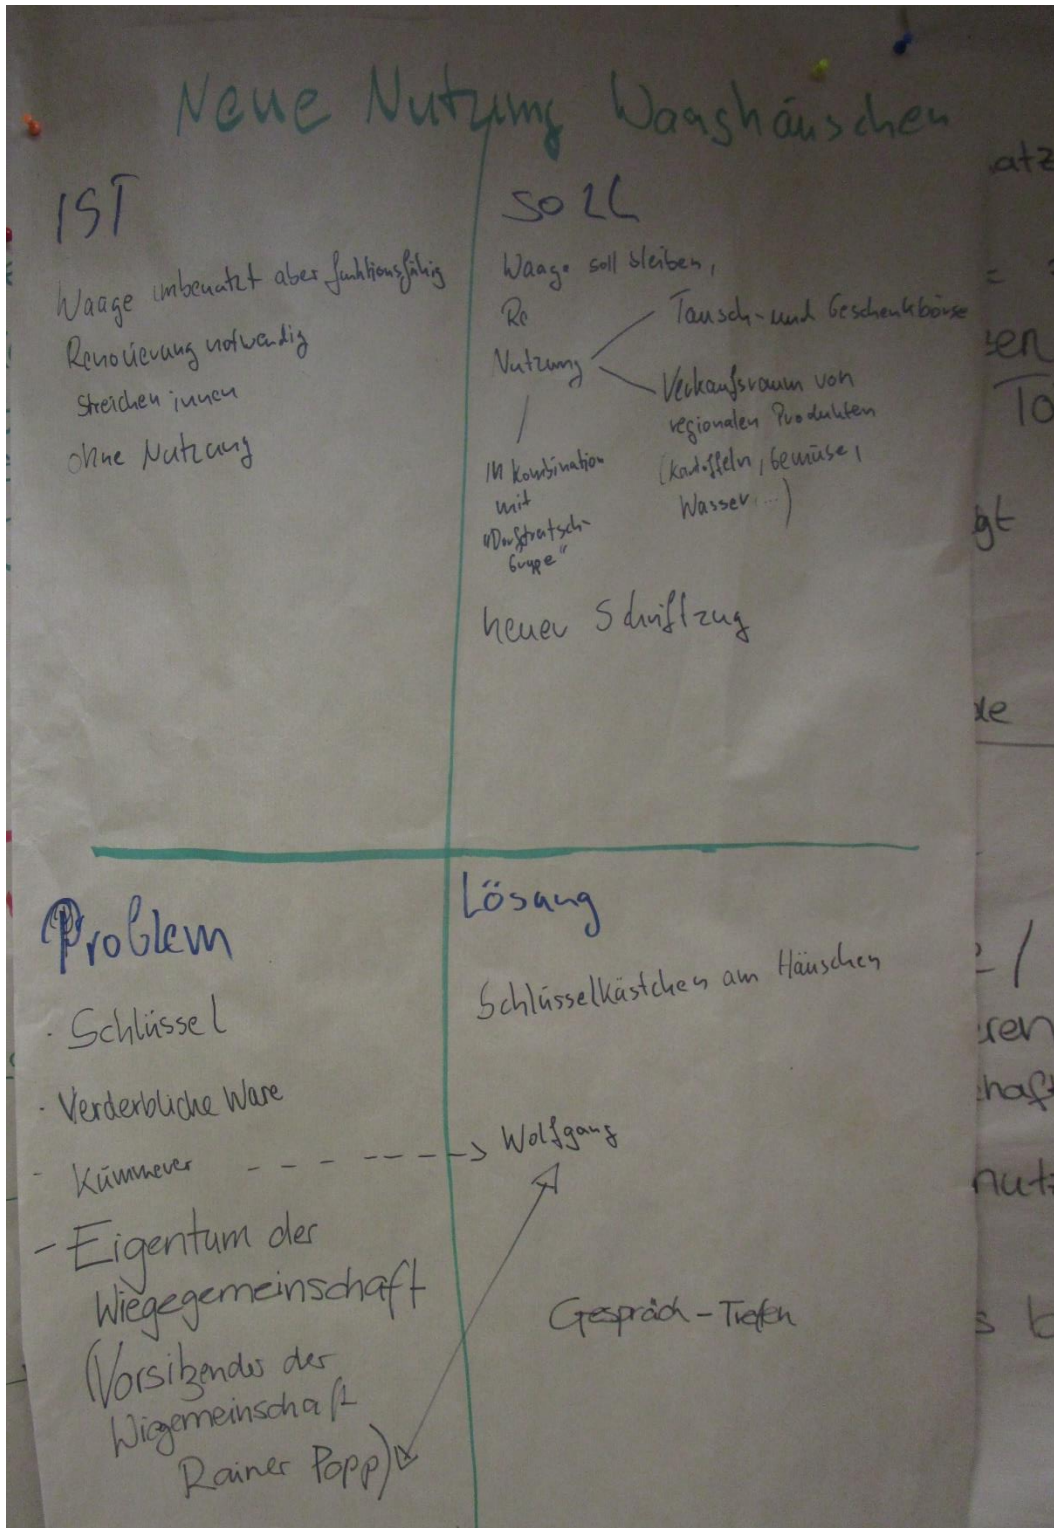 Neue Nutzung Waaghäuschen
IST
Waage unbenutzt aber funktionsfähig
Renovierung notwendig
Streichen innen
ohne Nutzung
SOLL
Waage soll bleiben,
Re
Nutzung
Tausch- und Geschenkbörse
Verkaufsraum von
regionalen Produkten
(Kartoffeln, Gemüse,
Wasser, ...)
in Kombination
mit
"Dorftratsch-
Gruppe"
neuer Schriftzug
Problem
· Schlüssel
· Verderbliche Ware
- Kümmerer
- Eigentum der
Wiegegemeinschaft
(Vorsitzender der
Wiegemeinschaft
Rainer Popp)
Lösung
Schlüsselkästchen am Häuschen
Wolfgang
Gespräch - Treffen
atz
sen
To
gt
de
ren
haft
nutz
s b